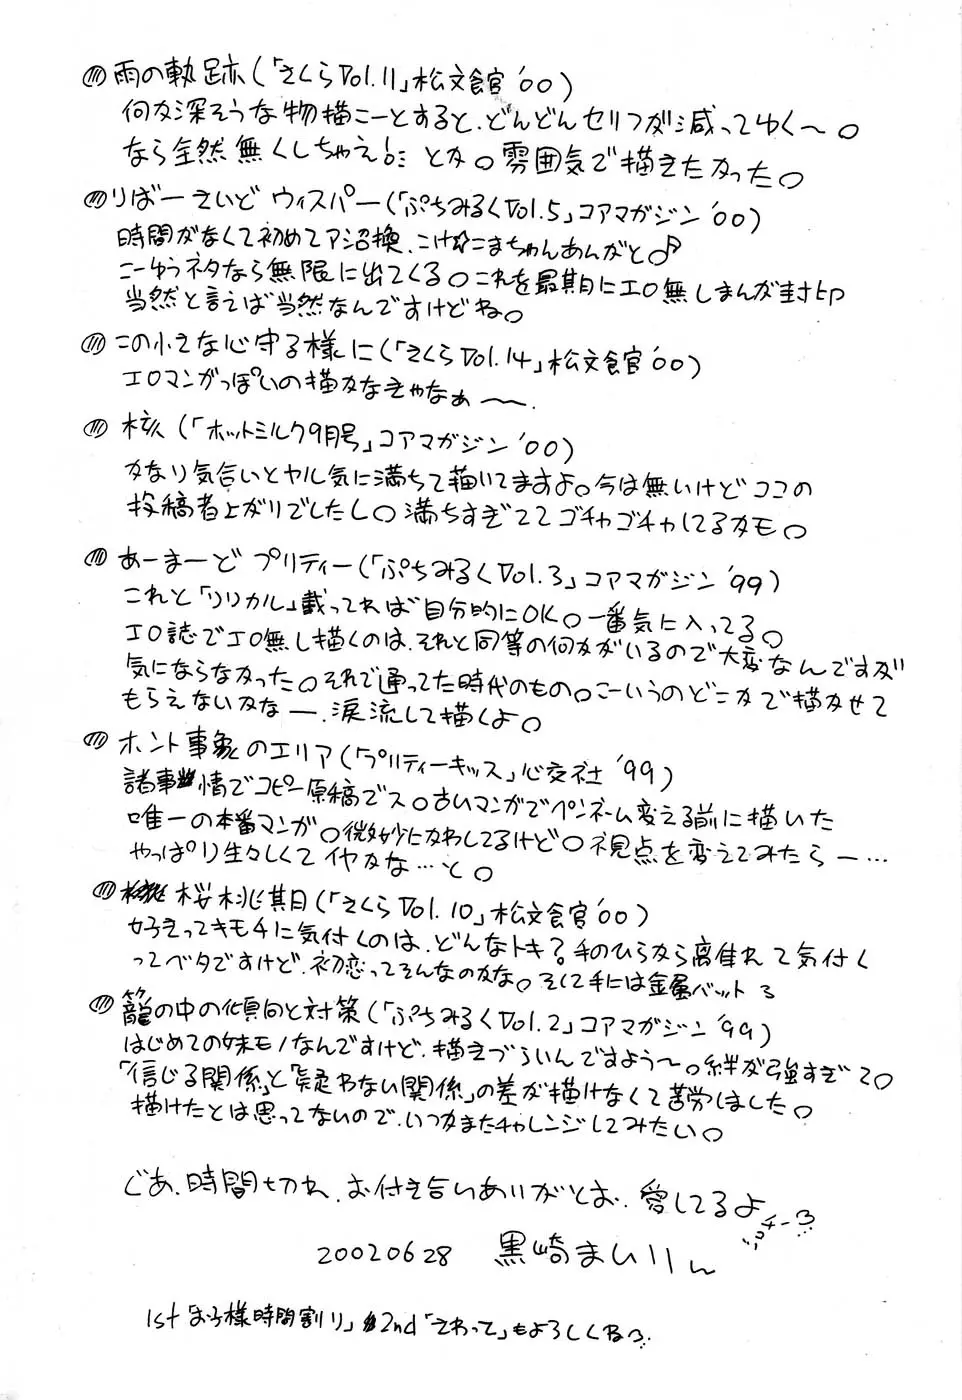 雨の軌跡(「さくらVol.11」松文館'00)
何か深そうな物描こーとすると、どんどんセリフが減ってゆく〜。
なら全然無くしちゃえ!とか。雰囲気で描きたかった。
りばーさいどウィスパー(「ぷちみるくVol.5」コアマガジン'00)
時間がなくて初めてアシ召換、こけ☆こまちゃんあんがと♪
こーゆうネタなら無限に出てくる。これを最期にエロ無しまんが封印
当然と言えば当然なんですけどね。
この小さな心守る様に(「さくらVol.14」松文館'00)
エロマンガっぽいの描かなきゃなぁ〜。
核(「ホットミルク9月号」コアマガジン'00)
かなり気合いとヤル気に満ちて描いてますよ。今は無いけどココの
投稿者上がりでしたし。満ちすぎててゴチャゴチャしてるカモ。
あーまーどプリティー(「ぷちみるくVol.3」コアマガジン'99)
これと「リリカル」載ってれば自分的にOK。一番気に入ってる。
エロ誌でエロ無し描くのは、それと同等の何かがいるので大変なんですが
気にならなかった。それで通ってた時代のもの。こーいうのどこかで描かせて
もらえないかなー、涙流して描くよ。
ホント事象のエリア(「プリティーキッス」心交社'99)
諸事情でコピー原稿でス。古いマンガでペンネーム変える前に描いた
唯一の本番マンガ。微妙にかわしてるけど。視点を変えてみたらー…
やっぱり生々しくてイヤかな…と。
桜桃其月(「さくらVol.10」松文館'00)
好きってキモチに気付くのは、どんなトキ?手のひらから離れて気付く
ってベタですけど、初恋ってそんなのかな。そして手には金属バット
籠の中の傾向と対策(「ぷちみるくVol.2」コアマガジン'99)
はじめての妹モノなんですけど、描きづらいんですよう〜。絆が強すぎて。
「信じる関係」と「疑わない関係」の差が描けなくて苦労しました。
描けたとは思ってないので、いつかまたチャレンジしてみたい。
じあ、時間切れ、お付き合いありがとお、愛してるよ
チー
20020628 黒崎まいりん
1st「お子様時間割り」2nd「さわって」もよろしくね